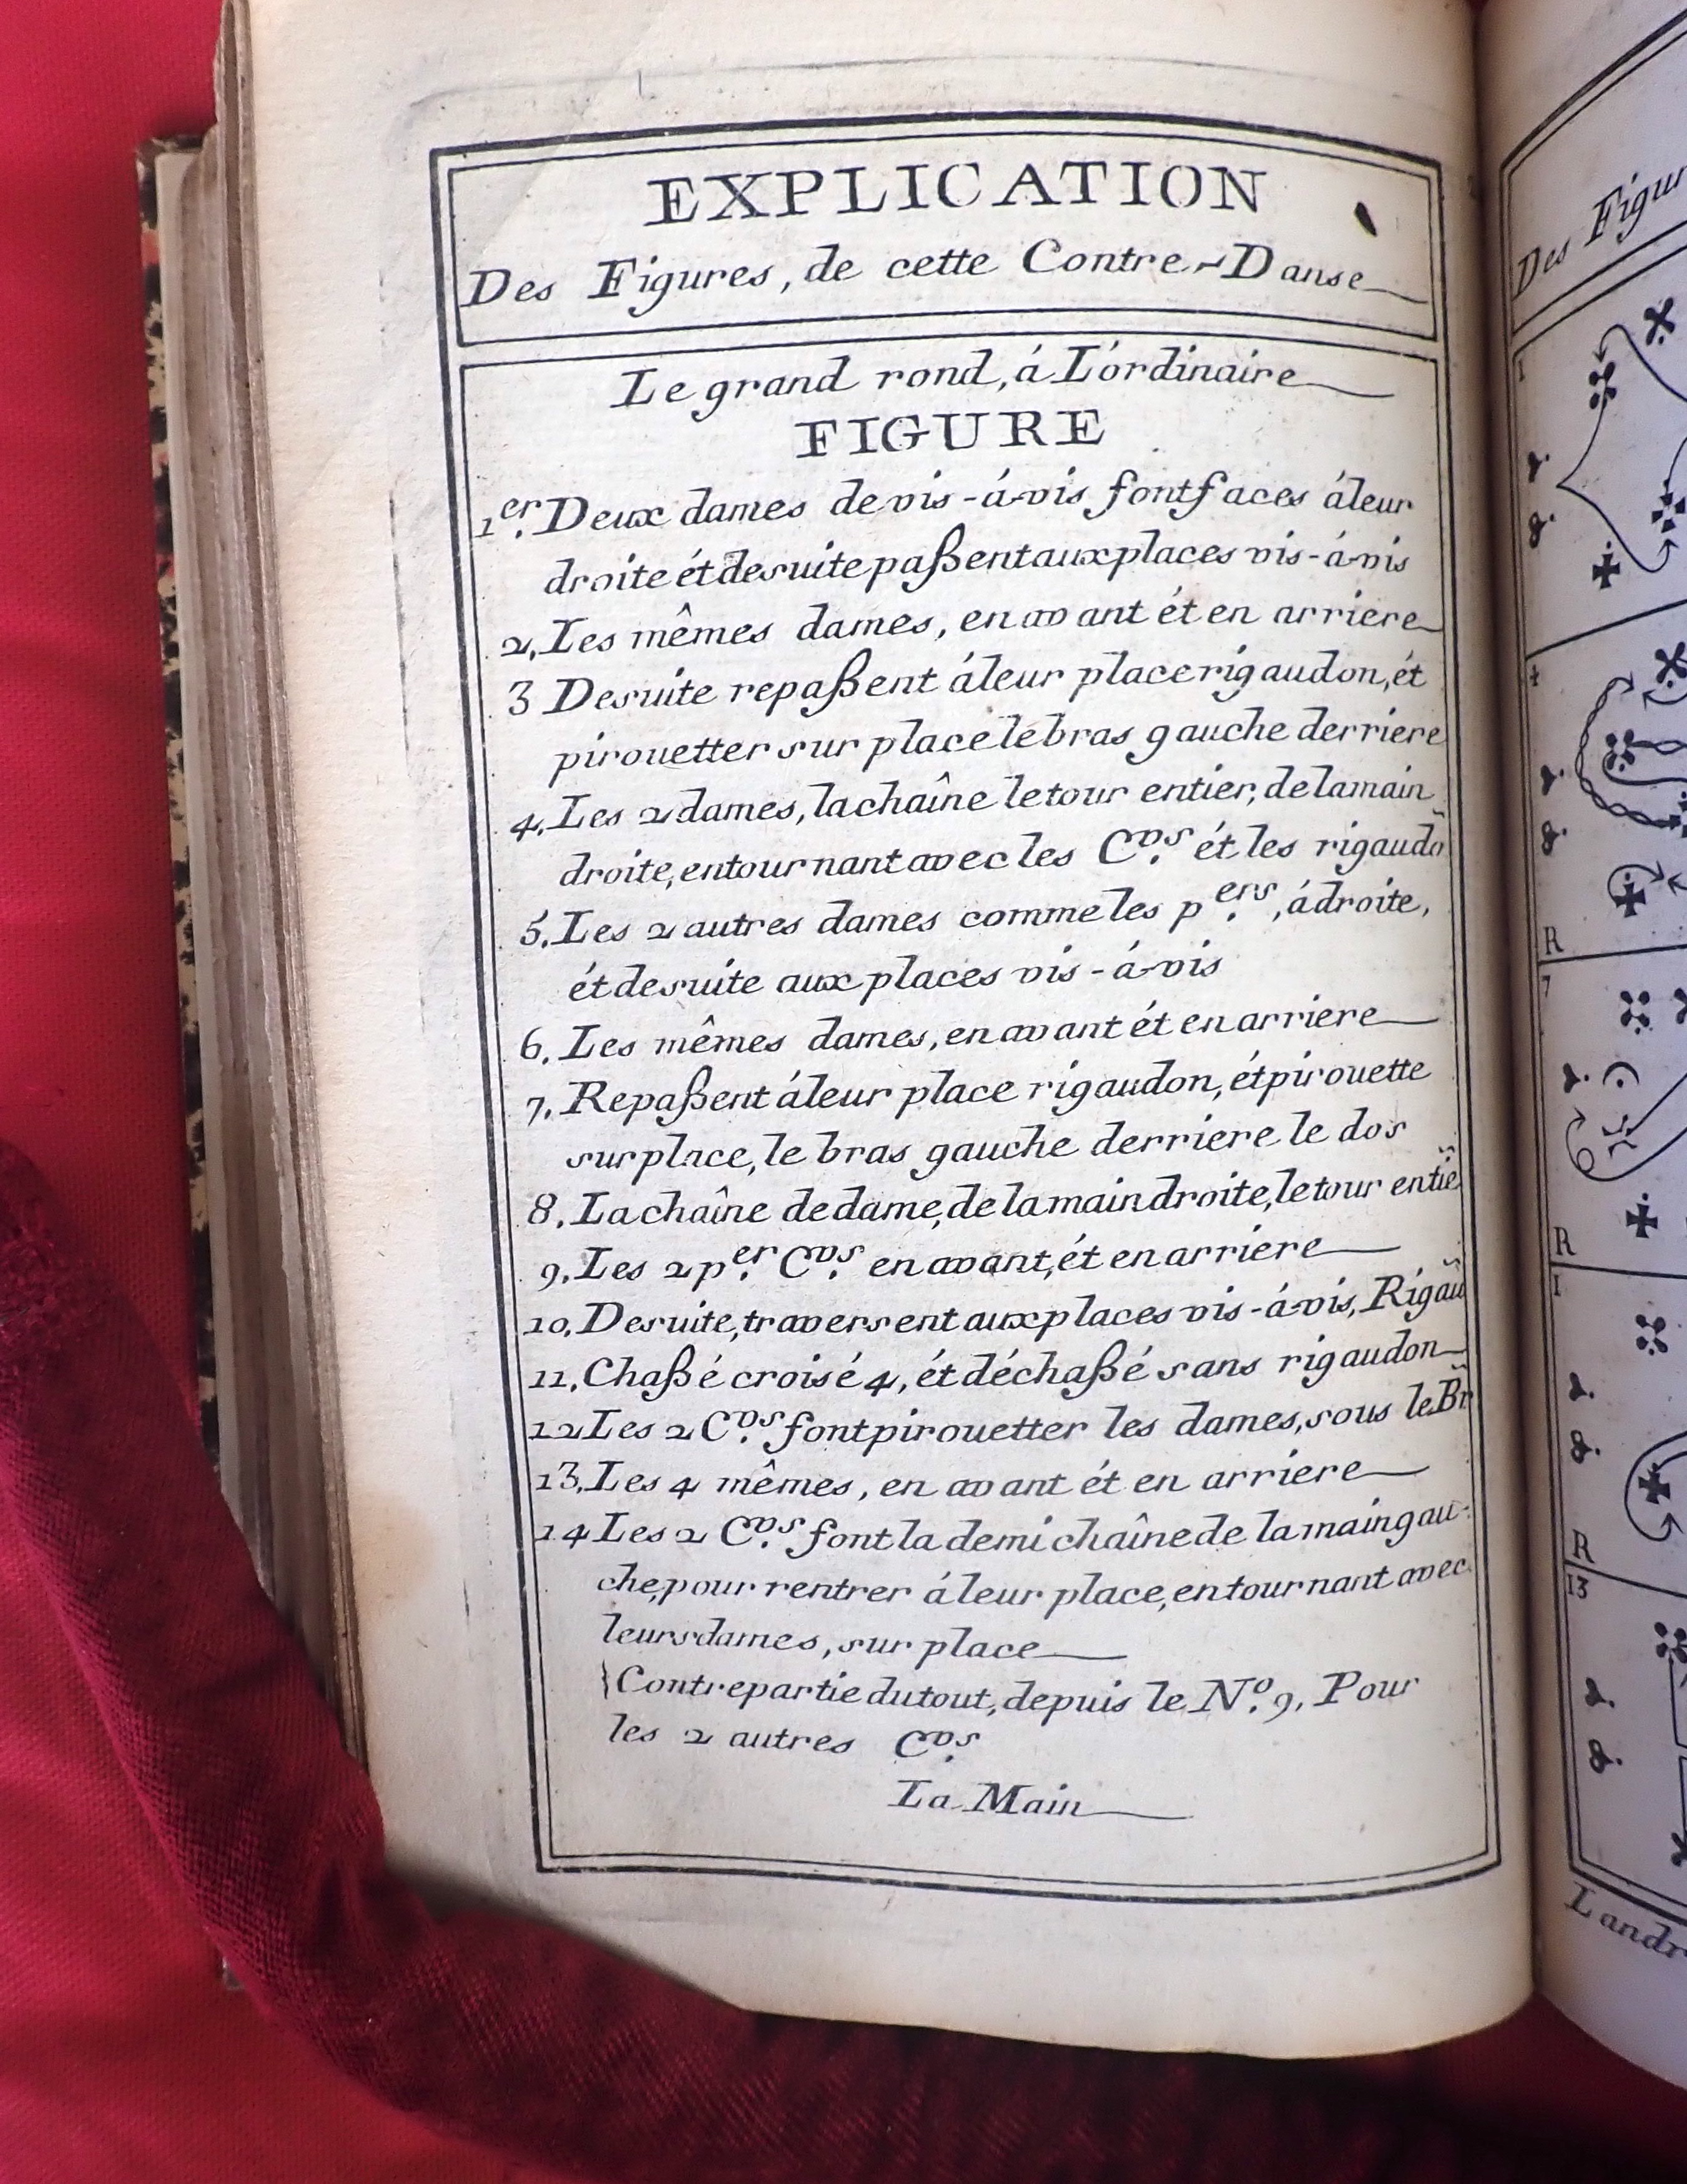 EXPLICATION
Des Figures, de cette Contre-Danse
Le grand rond, á L'órdinaire
FIGURE
1er. Deux dames de vis-á-vis font faces á leur
droite ét de suite paßent aux places vis-á-vis
2. Les mêmes dames, en avant ét en arriere
3 De suite repaßent á leur place rigaudon, ét
pirouetter sur place le bras gauche derriere
4. Les 2 dames, la chaîne le tour entier, de la main
droite, en tournant avec les Cvs. ét les rigaudõ
5. Les 2 autres dames comme les pers., á droite,
ét de suite aux places vis-á-vis
6. Les mêmes dames, en avant ét en arriere
7. Repaßent á leur place rigaudon, ét pirouette
sur place, le bras gauche derriere le dos
8. La chaîne de dame, de la main droite, le tour entie
9. Les 2 per. Cvs. en avant, ét en arriere
10. De suite, traversent aux places vis-á-vis, Rigau
11. Chaßé croisé 4, ét déchaßé sans rigaudon
12 Les 2 Cvs. font pirouetter les dames, sous le Br
13. Les 4 mêmes, en avant ét en arriere
14 Les 2 Cvs. font la demi chaîne de la main gau-
che, pour rentrer á leur place, en tournant avec
leurs dames, sur place
Contrepartie du tout, depuis le No. 9, Pour
les 2 autres Cvs.
La Main
Des Figur
1
4
R
7
R
1
R
13
Landr